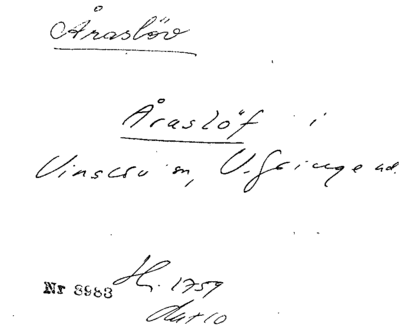 Åraslöv
Åraslöf i
Vinslöv sn, V. Göinge hd.
Hr. 1759
Nr 8983
dat 10